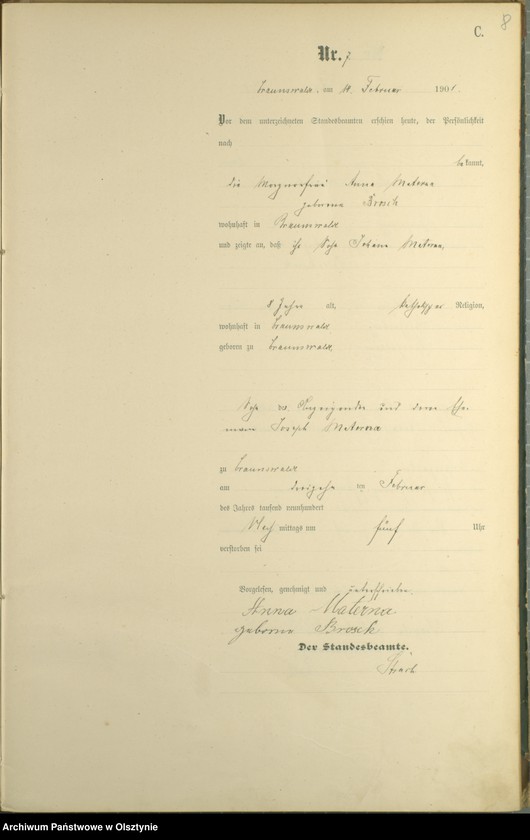 C.
8
Nr. 7
Braunswalde, am 14 Februar 1901.
Vor dem unterzeichneten Standesbeamten erschien heute, der Persönlichkeit
nach
bekannt,
die Anna Materna
geborene Brosch
wohnhaft in Braunswalde
und zeigte an, daß Materna,
8 Jahre alt, katholischer Religion,
wohnhaft in Braunswalde
geboren zu Braunswalde
der Anzeigenden und deren Ehe-
mann Joseph Materna
zu Braunswalde
am dreizehn ten Februar
des Jahres tausend neunhundert
Nach mittags um fünf Uhr
verstorben sei
Vorgelesen, genehmigt und unterschrieben.
Anna Materna
geborne Brosch
Der Standesbeamte.
Archiwum Państwowe w Olsztynie